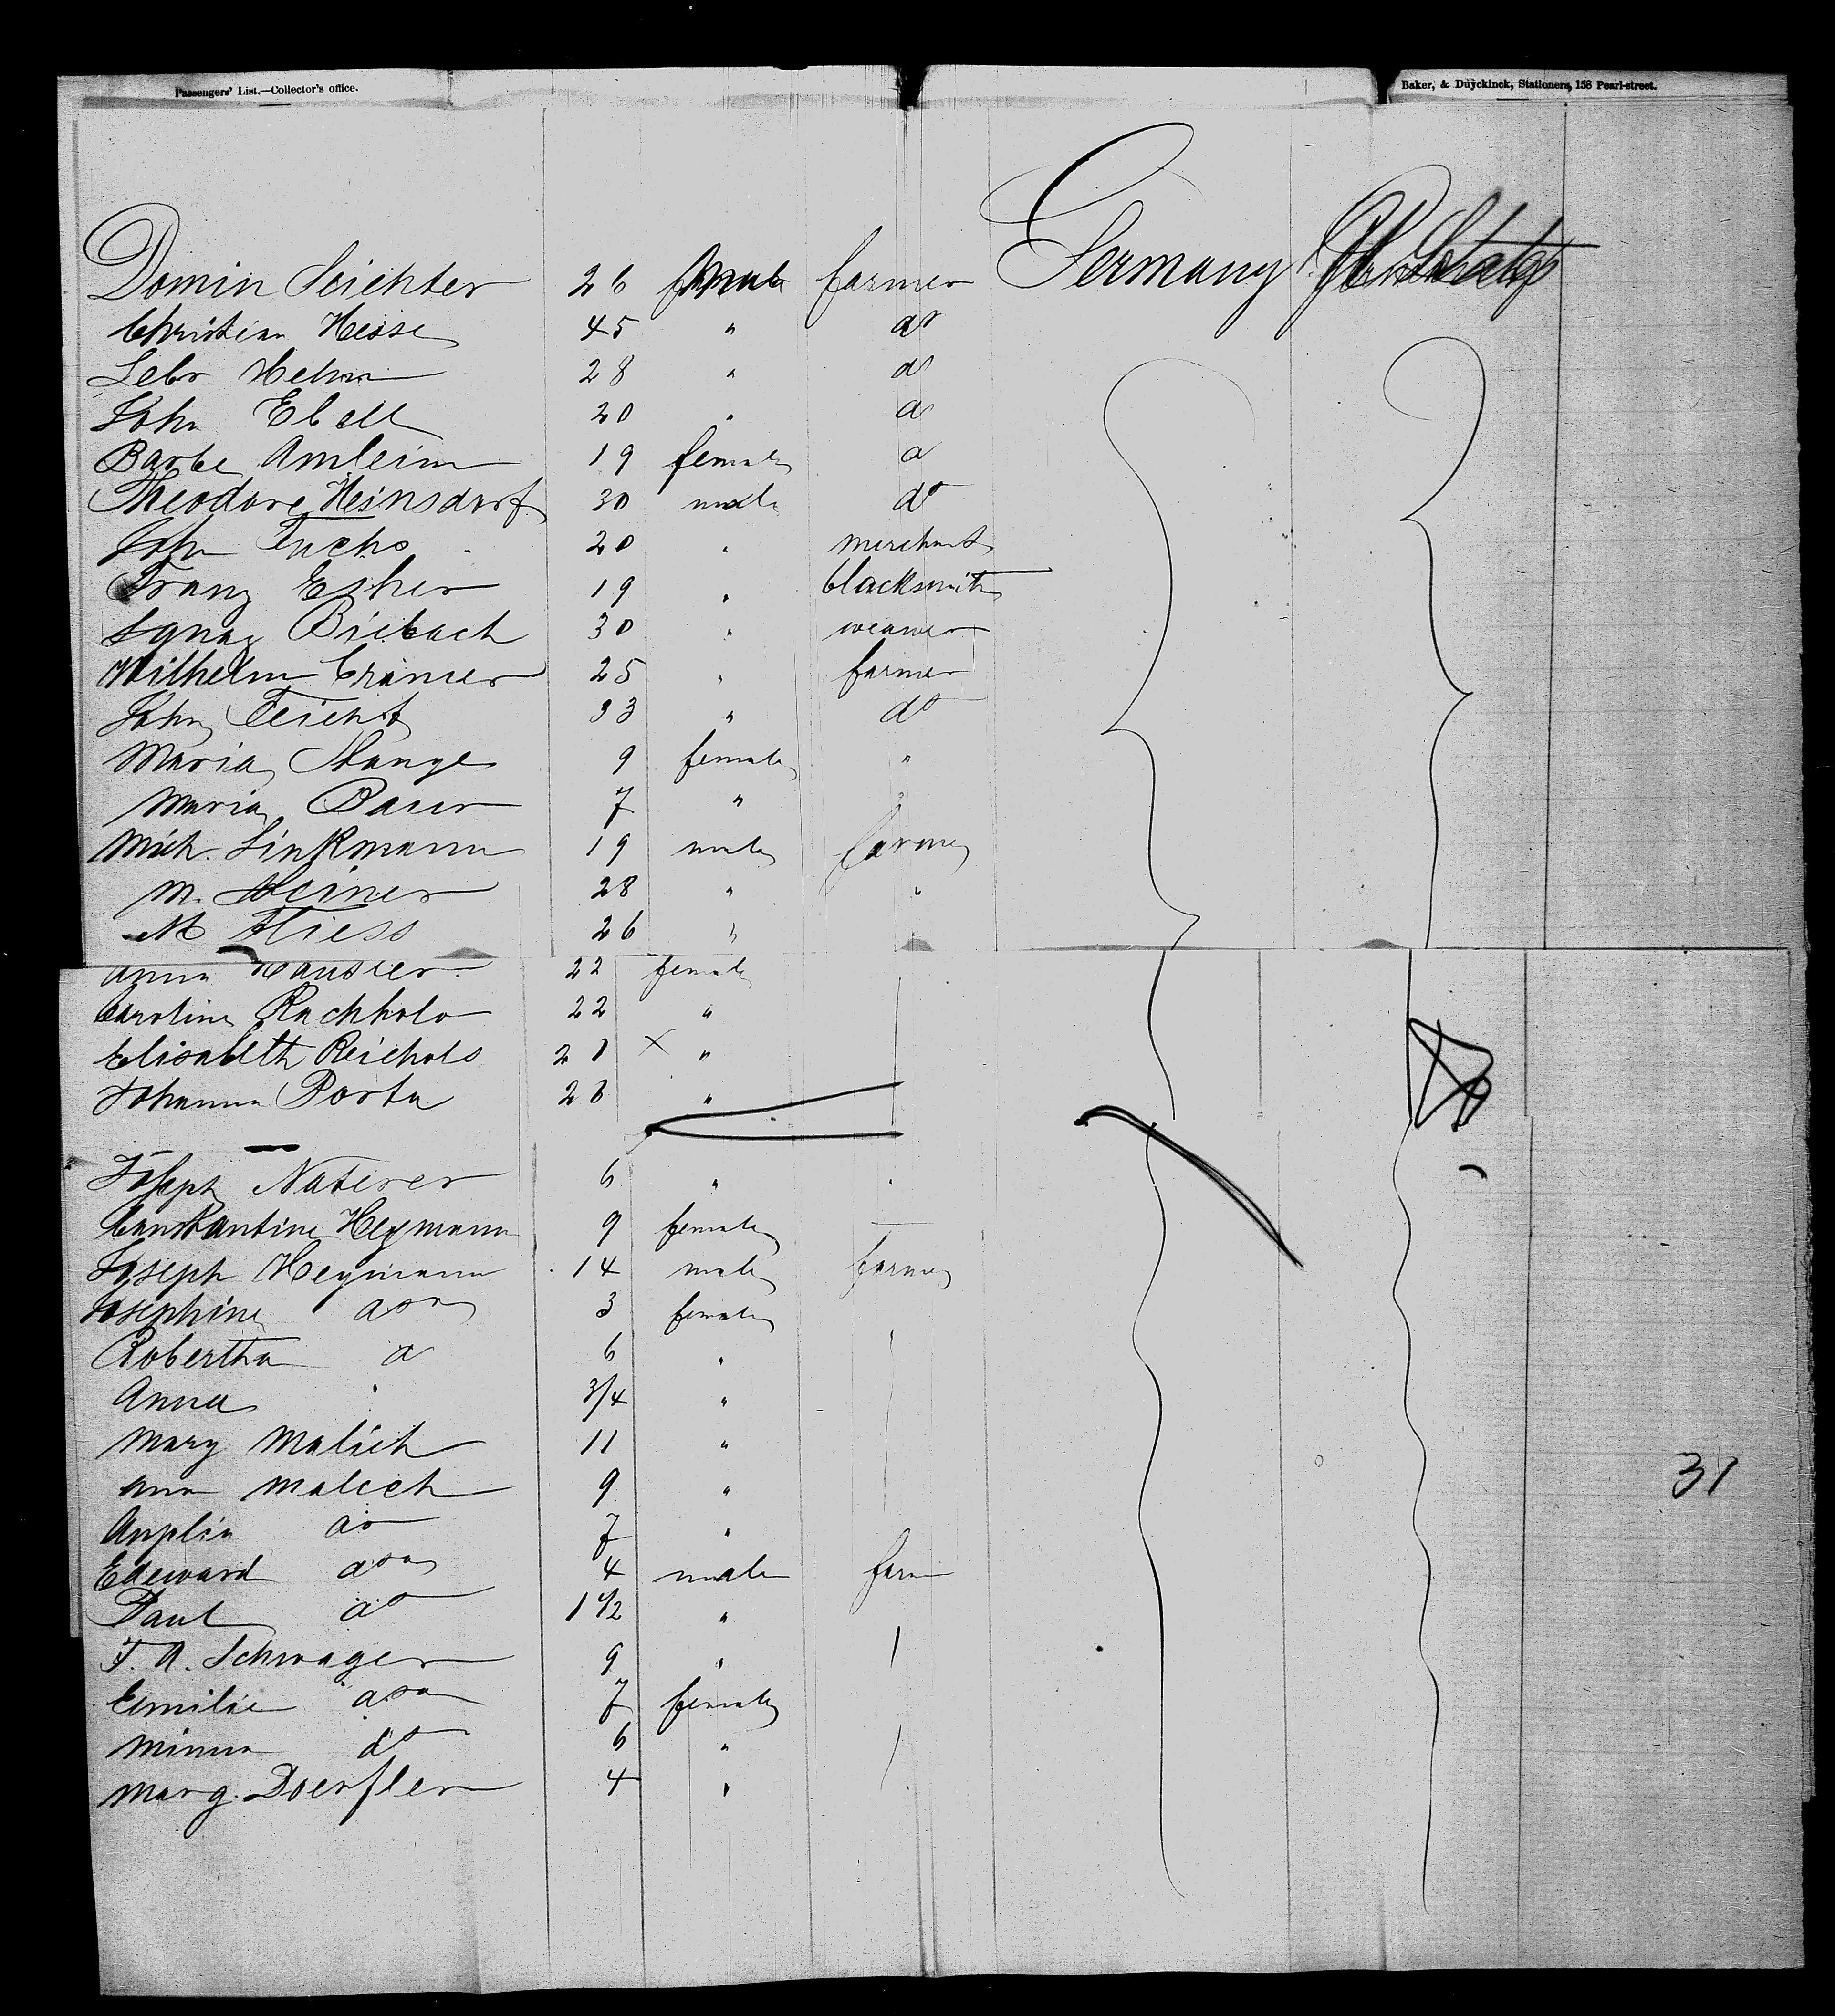 Passengers' List.—Collector's office. Baker, & Duyckinck, Stationers, 158 Pearl-street.
Domin Seichter 26 male farmer Germany
Christian Hesse 45 " do
Lebr Hehm 28 " do
John Ebell 20 " do
Barbe Amlein 19 female do
Theodore Heinsdorf 30 male do
John Fuchs 20 " merchant
Franz Esher 19 " blacksmith
Ignaz Biebach 30 " weaver
Wilhelm Cramer 25 " farmer
John Feicht 33 " do
Maria Stange 9 female "
Maria Baur 7 " "
Mich. Linkmann 19 male farmer
M. Steiner 28 " "
M Thiess 26 "
Anna Hausler 22 female
Caroline Rachholo 22 "
Elisabeth Reichols 21 X "
Johanna Porta 28 "
Joseph Naterer 6 "
Constantine Heymann 9 female
Joseph Heymann 14 male farmer
Josephine do 3 female
Robertha do 6 "
Anna " 3/4 "
Mary Malich 11 "
Ann Malich 9 "
31
do 7 "
Edeward do 4 male farm
Paul do 1 1/2 "
F. A. Schwager 9 "
Emilie do 7 female
Minna do 6 "
Marg. Doerfler 4 "